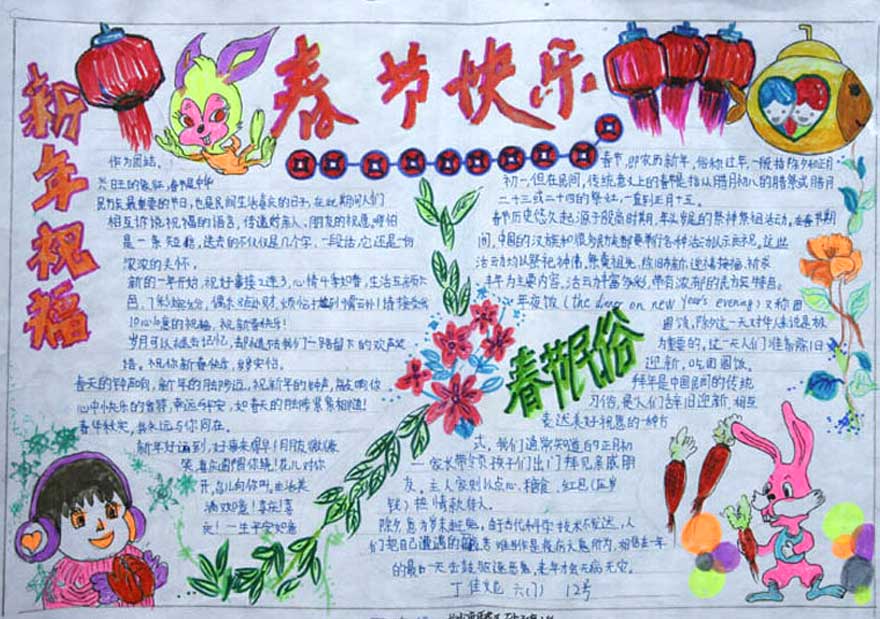 春节快乐
新年祝福
作为团结、
兴旺的象征,春节是中华
民族最重要的节日,也是民间生活喜庆的日子,在此期间人们
相互诉说祝福的语言,传递对亲人、朋友的祝愿。哪怕
是一条短篇,送去的不仅仅是几个字、一段话,它还是一份
浓浓的关怀。
新的一年开始,祝好事接2连3,心情4季如春,生活
色,7彩缤纷,偶尔8点小财,烦恼抛到9霄云外!请接受我
10心10意的祝福。祝新春快乐!
岁月可以褪去记忆,却褪不去我们一路留下的欢声笑
语。祝你新春快乐,岁岁安怡。
春天的钟声响,新年的脚步迈,祝新年的钟声,敲响你
心中快乐的音符,幸运与平安,如春天的脚步紧紧相随!
春华秋实,我永远与你同在。
新年好运到,好事来得早!朋友微微
笑,喜庆围你绕!花儿对你
开,鸟儿向你叫。生活美
满又如意!喜庆!喜
庆!一生平安如意
春节,即农历新年,俗称过年,一般指除夕和正月
初一,但在民间,传统意义上的春节是指从腊月初八的腊祭或腊月
二十三或二十四的祭灶,一直到正月十五。
春节历史悠久,起源于殷商时期,年头岁尾的祭神祭祖活动。在春节期
间,中国的汉族和很多民族都要举行各种活动以示庆祝。这些
活动均以祭祀神佛、祭奠祖先、除旧布新、迎禧接福、祈求
丰年为主要内容。活动丰富多彩,带有浓郁的民族特色。
年夜饭(the dinner on new Year's evening)又称团
圆饭,除夕这一天对华人来说是极
为重要的。这一天人们准备除旧
迎新,吃团圆饭。
春节民俗
拜年是中国民间的传统
习俗,是人们辞旧迎新、相互
表达美好祝愿的一种方
式。我们通常知道的正月初
一家长带领孩子们出门拜见亲戚朋
友。主人家则以点心、糖食、红包(压岁
钱)热情款待。
除夕意为岁末赶鬼,由于古代科学技术不发达,人
们把自己遭遇的
的最后一天击鼓驱逐恶鬼,来年才会无病无灾。
六(1) 12号